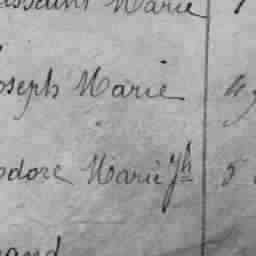 Marie
oseph Marie
odore Marie Jh 5
and